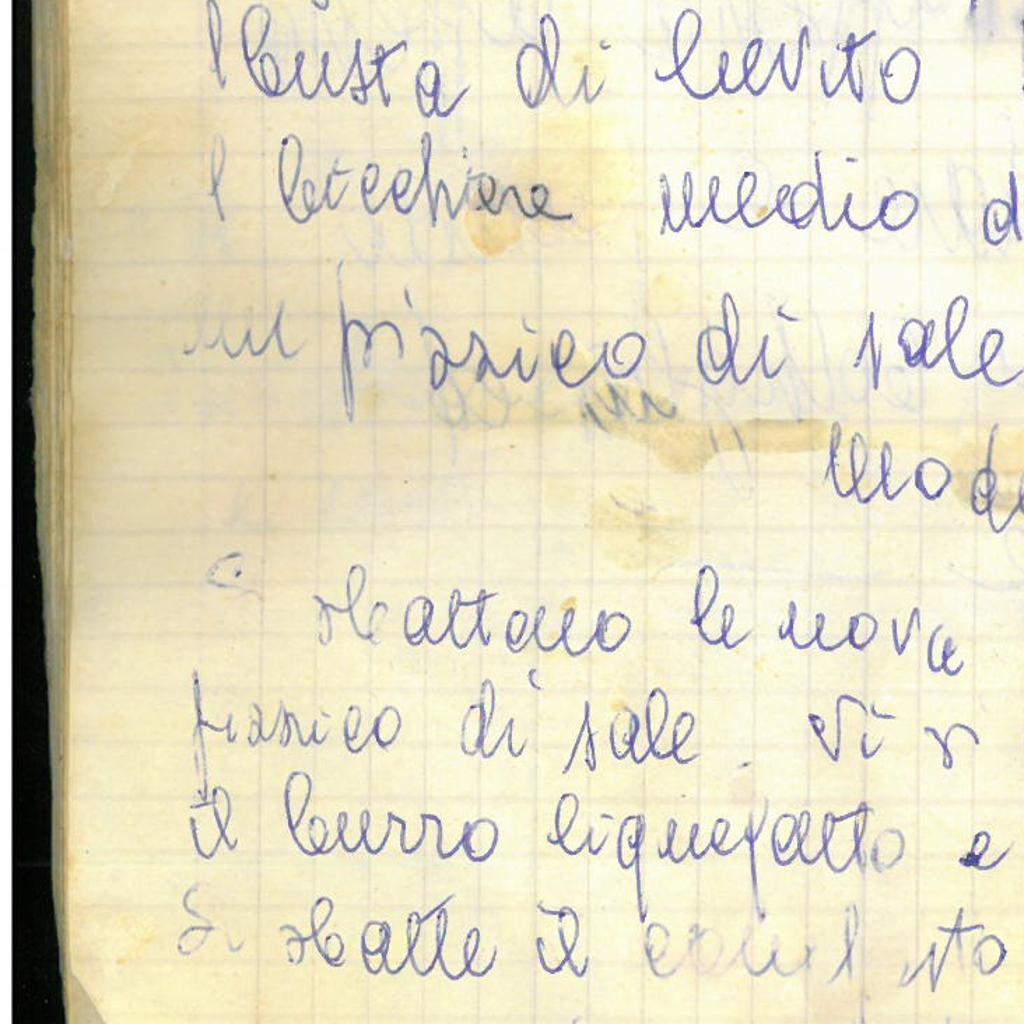 1 busta di lievito
1 bicchiere medio d
un pizzico di sale
mod
Si sbattono le uova
pizzico di sale. Vi si
il burro liquefatto e
Si sbatte il